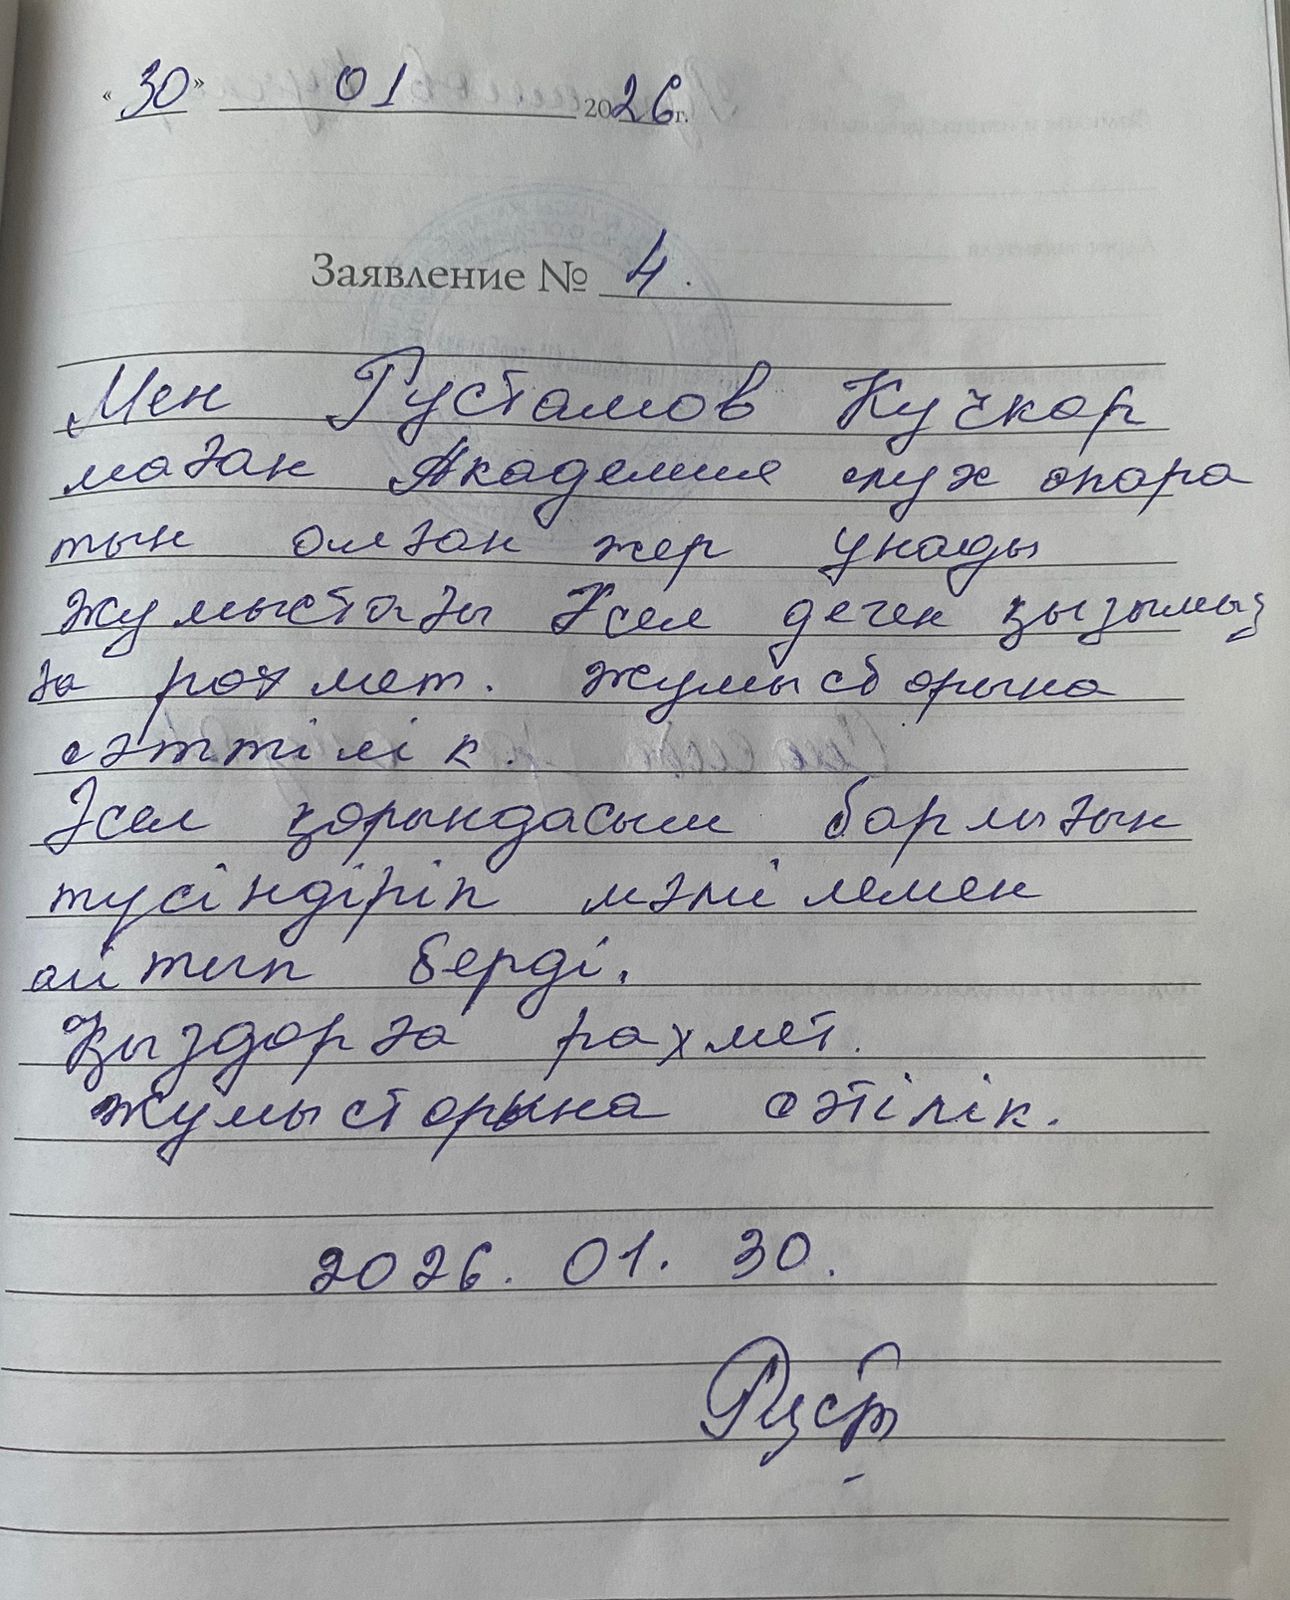 «30» 01 2026 г.
Заявление № 4.
Мен Рустамов Кучкар
маған Академия слух апара
тын алған жер ұнады
Жұмыстағы Әсел деген қызымыз
ға рахмет. Жумысбарына
сәттілік.
Әсел қарындасым барлығын
түсіндіріп мәнілемен
айтып берді.
Қыздарға рахмет.
Жумыстарына сәтілік.
2026. 01. 30.
Руст